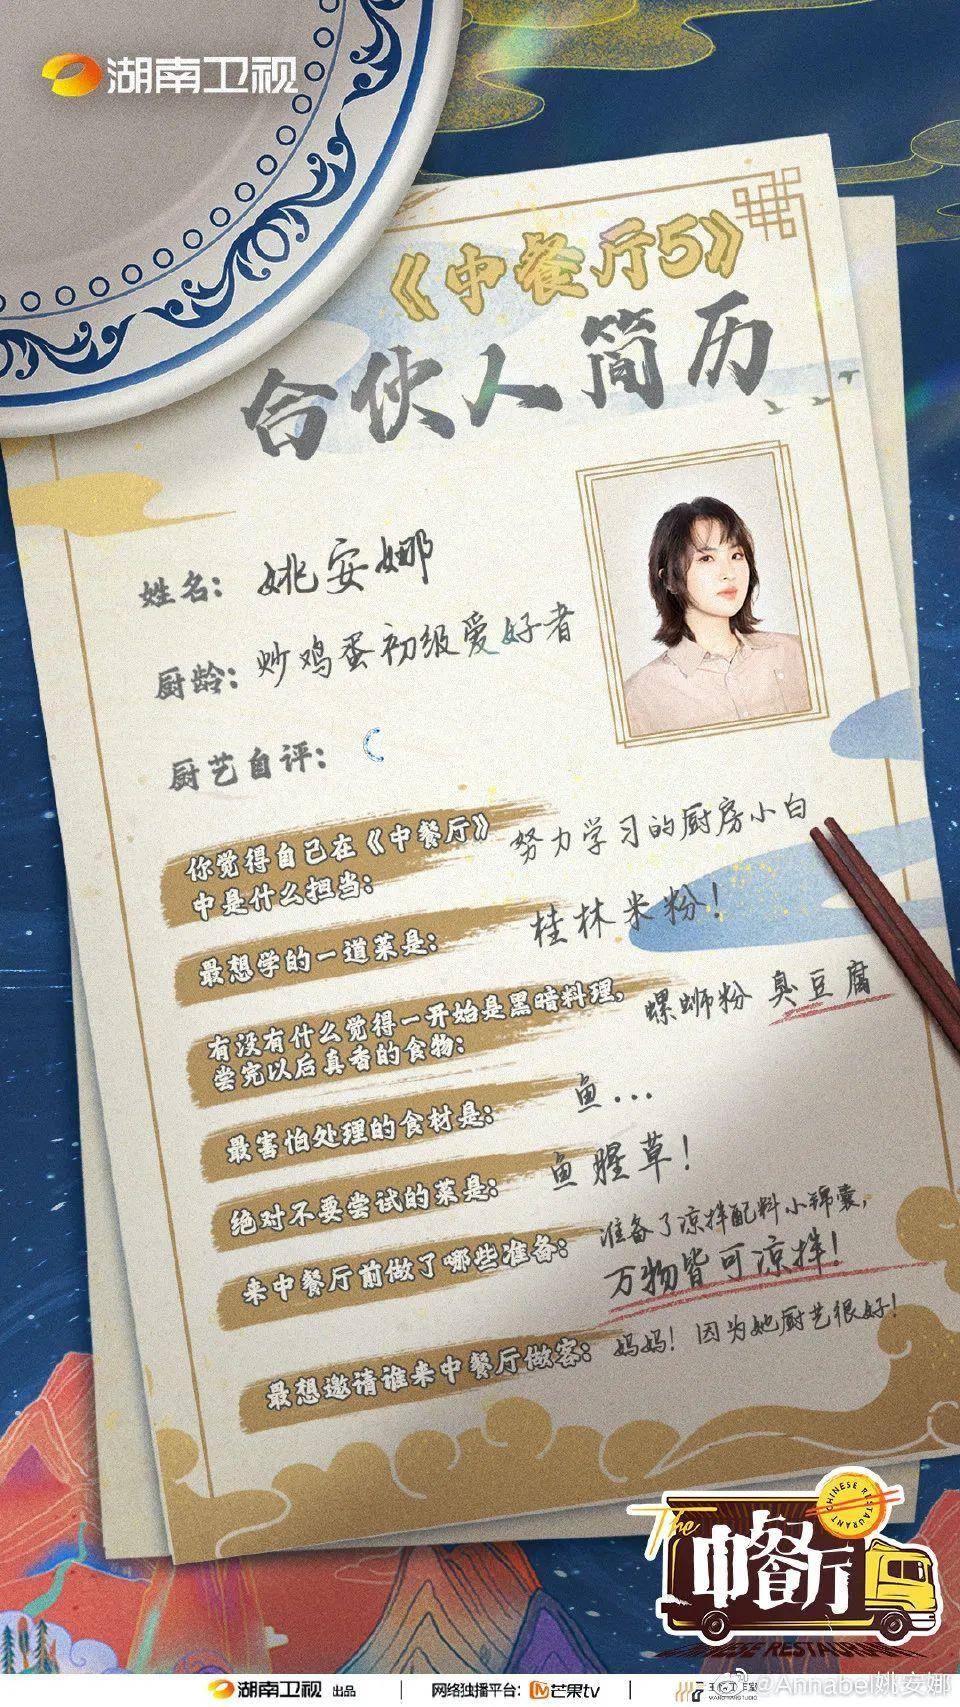 湖南卫视
《中餐厅5》
合伙人简历
姓名：姚安娜
厨龄：炒鸡蛋初级爱好者
厨艺自评：
你觉得自己在《中餐厅》
中是什么担当：
努力学习的厨房小白
最想学的一道菜是：
桂林米粉！
有没有什么觉得一开始是黑暗料理，
尝完以后真香的食物：
螺蛳粉 臭豆腐
最害怕处理的食材是：
鱼...
绝对不要尝试的菜是：
鱼腥草！
来中餐厅前做了哪些准备：
准备了凉拌配料小锦囊，
万物皆可凉拌！
最想邀请谁来中餐厅做客：
妈妈！因为她厨艺很好！
CHINESE RESTAURANT
The
中餐厅
CHINESE RESTAURANT
@Annabel姚安娜
湖南卫视 出品
网络独播平台：芒果tv